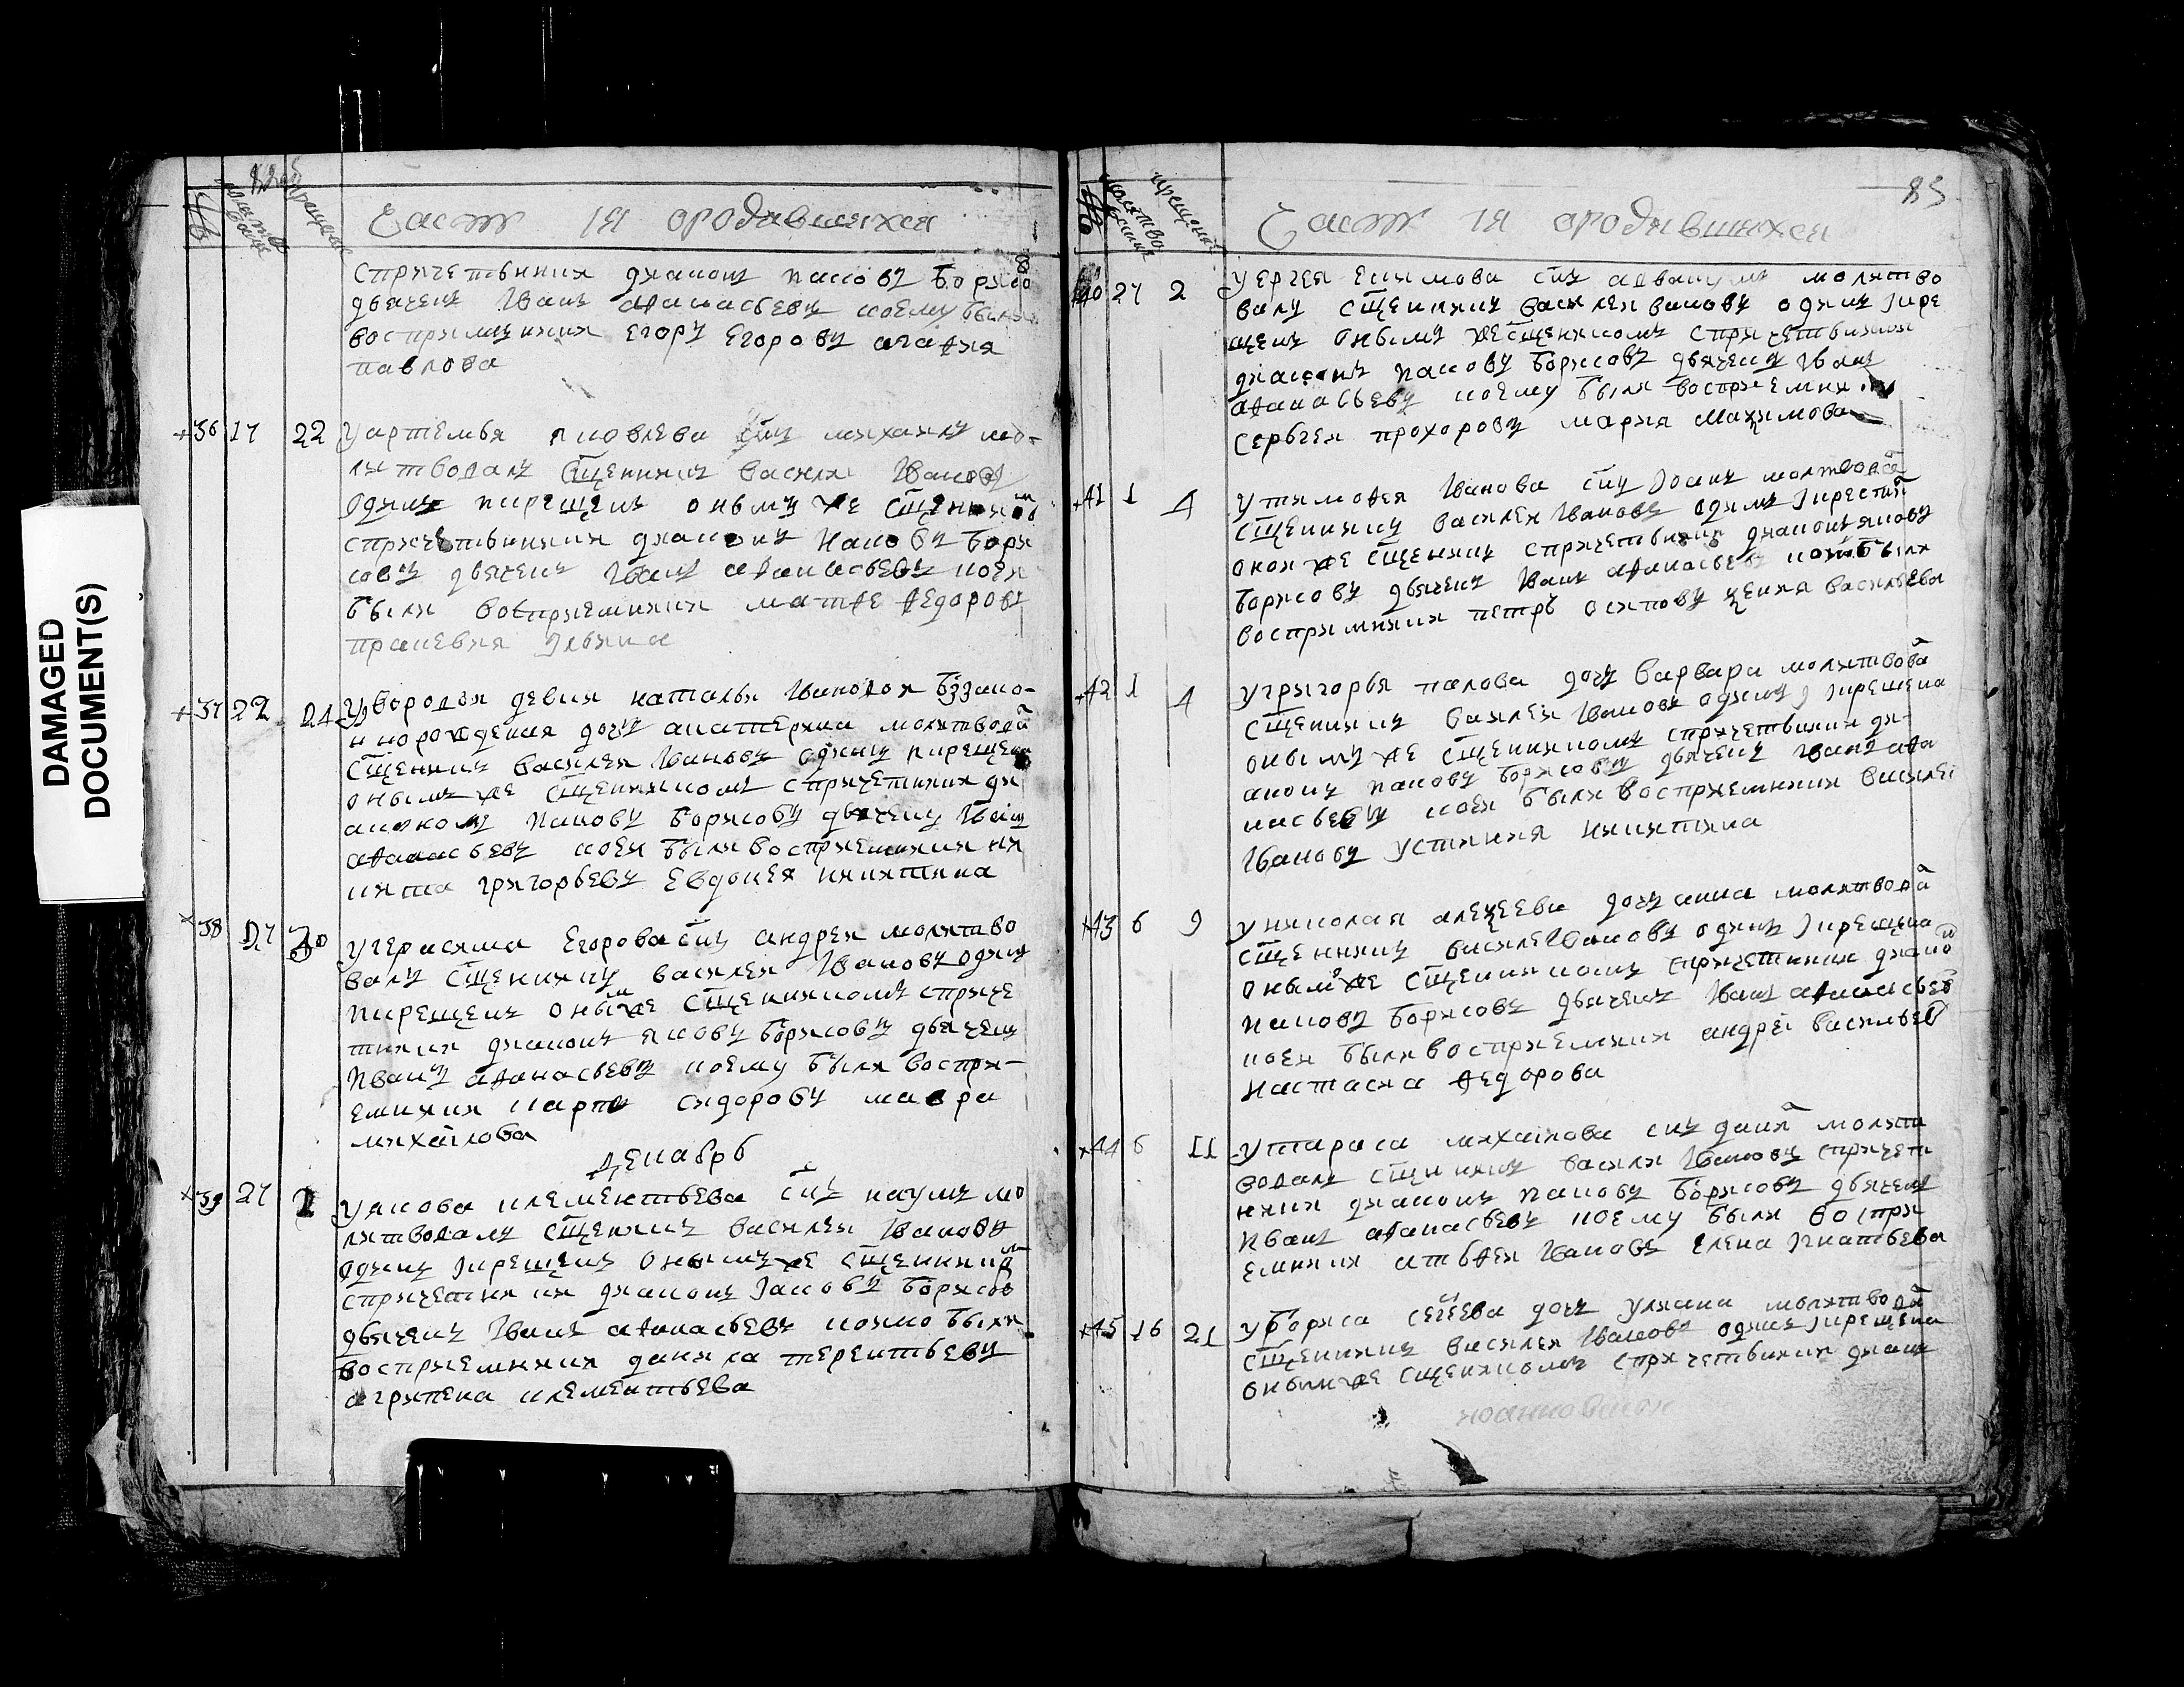 DAMAGED
DOCUMENT(S)
Часть 1я о родившихся
спричетники диакон иаков борисо
дьячец иван афанасьевъ коему были
восприимники егоръ егоровъ агафия
павлова
+36 17 22 У артемья яковлева сын михаилъ мо-
литвовалъ сщенникъ василеи иванов
одинъ и крещенъ онымъ же сщенником
спричетники диаконъ иаковъ бори
совъ дьячецъ иванъ афанасьевъ коея
были восприемники матфе федоровъ
праковья ильина
+37 22 24 У городои девки натальи ивановои
рождения дочь акатерина молитвова
сщенникъ василеи ивановъ одинъ и крещена
онымъ же сщенникомъ с причетники ди
акономъ иаковъ борисовъ дьячецъ иван
афанасьевъ коея были восприемники ни
кита григорьевъ евдокея никитина
+38 24 30 У герасима егорова сынъ андреи молитво
валъ сщенникъ василеи ивановъ одинъ
и крещенъ оным же сщенникомъ с приче
тники диаконъ яковъ борисовъ дьячец
иванъ афанасьевъ коему были воспри-
емники карпъ сидоровъ мавра
михаилова
Декабрь
+39 27 1 У якова клементьева сынъ наумъ мо
литвовалъ сщенникъ василеи ивановъ
одинъ и крещенъ онымъ же сщенником
с причетники диаконъ иаковъ борисов
дьячецъ иванъ афанасьевъ коемо были
восприемники данила терентьевъ
агрипена клементьева
85
крещение
Часть 1я о родившихся
40 27 2 У сергея ефимова сынъ молитво
валъ сщенникъ василеи ивановъ одинъ и кре
щенъ онымъ же сщенникомъ с причетники
диаконъ иаковъ борисовъ дьячецъ иванъ
афанасьевъ коему были восприемники
сергеи прохоровъ мария максимова
+41 1 4 У тимофея иванова сынъ иоанъ молитвова
сщенникъ василеи ивановъ одинъ и крестил
онои же сщенникъ с причетники диаконъ яковъ
борисовъ дьячецъ иванъ афанасьевъ были
восприимники петръ осиповъ ксения васильева
+42 1 4 У григорья павлова дочь варвара молитвова
сщенникъ василеи ивановъ одинъ и крещена
онымъ же сщенникомъ с причетники ди-
аконъ иаковъ борисовъ дьячецъ иванъ афа
насьевъ коея были восприемники василеи
ивановъ устиния никитина
+43 6 9 У николая алексеева дочь анна молитвова
сщенникъ василеи ивановъ одинъ и крещена
оным же сщенникомъ с причетники диако
иаковъ борисовъ дьячецъ иванъ афанасьев
коея были восприемники андреи васильев
настасиа федорова
+44 6 11 У тараса михаилова сынъ молитв
валъ сщенникъ василеи ивановъ с причет
ники диаконъ иаковъ борисовъ дьячецъ
иванъ афанасьевъ коему были воспри
емники матвеи ивановъ елена игнатьева
+45 16 21 У бориса сегеева дочь улиана молитвова
сщенникъ василеи ивановъ одинъ и крещена
оным же сщенникомъ с причетники диакон